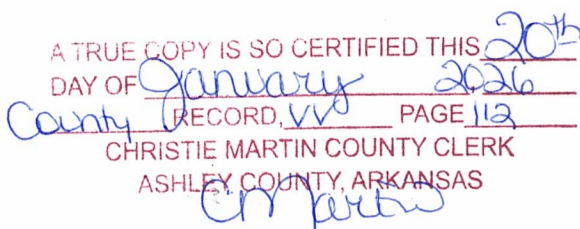 A TRUE COPY IS SO CERTIFIED THIS 20th
DAY OF January 2026
County RECORD, VV PAGE 112
CHRISTIE MARTIN COUNTY CLERK
ASHLEY COUNTY, ARKANSAS
CMartin